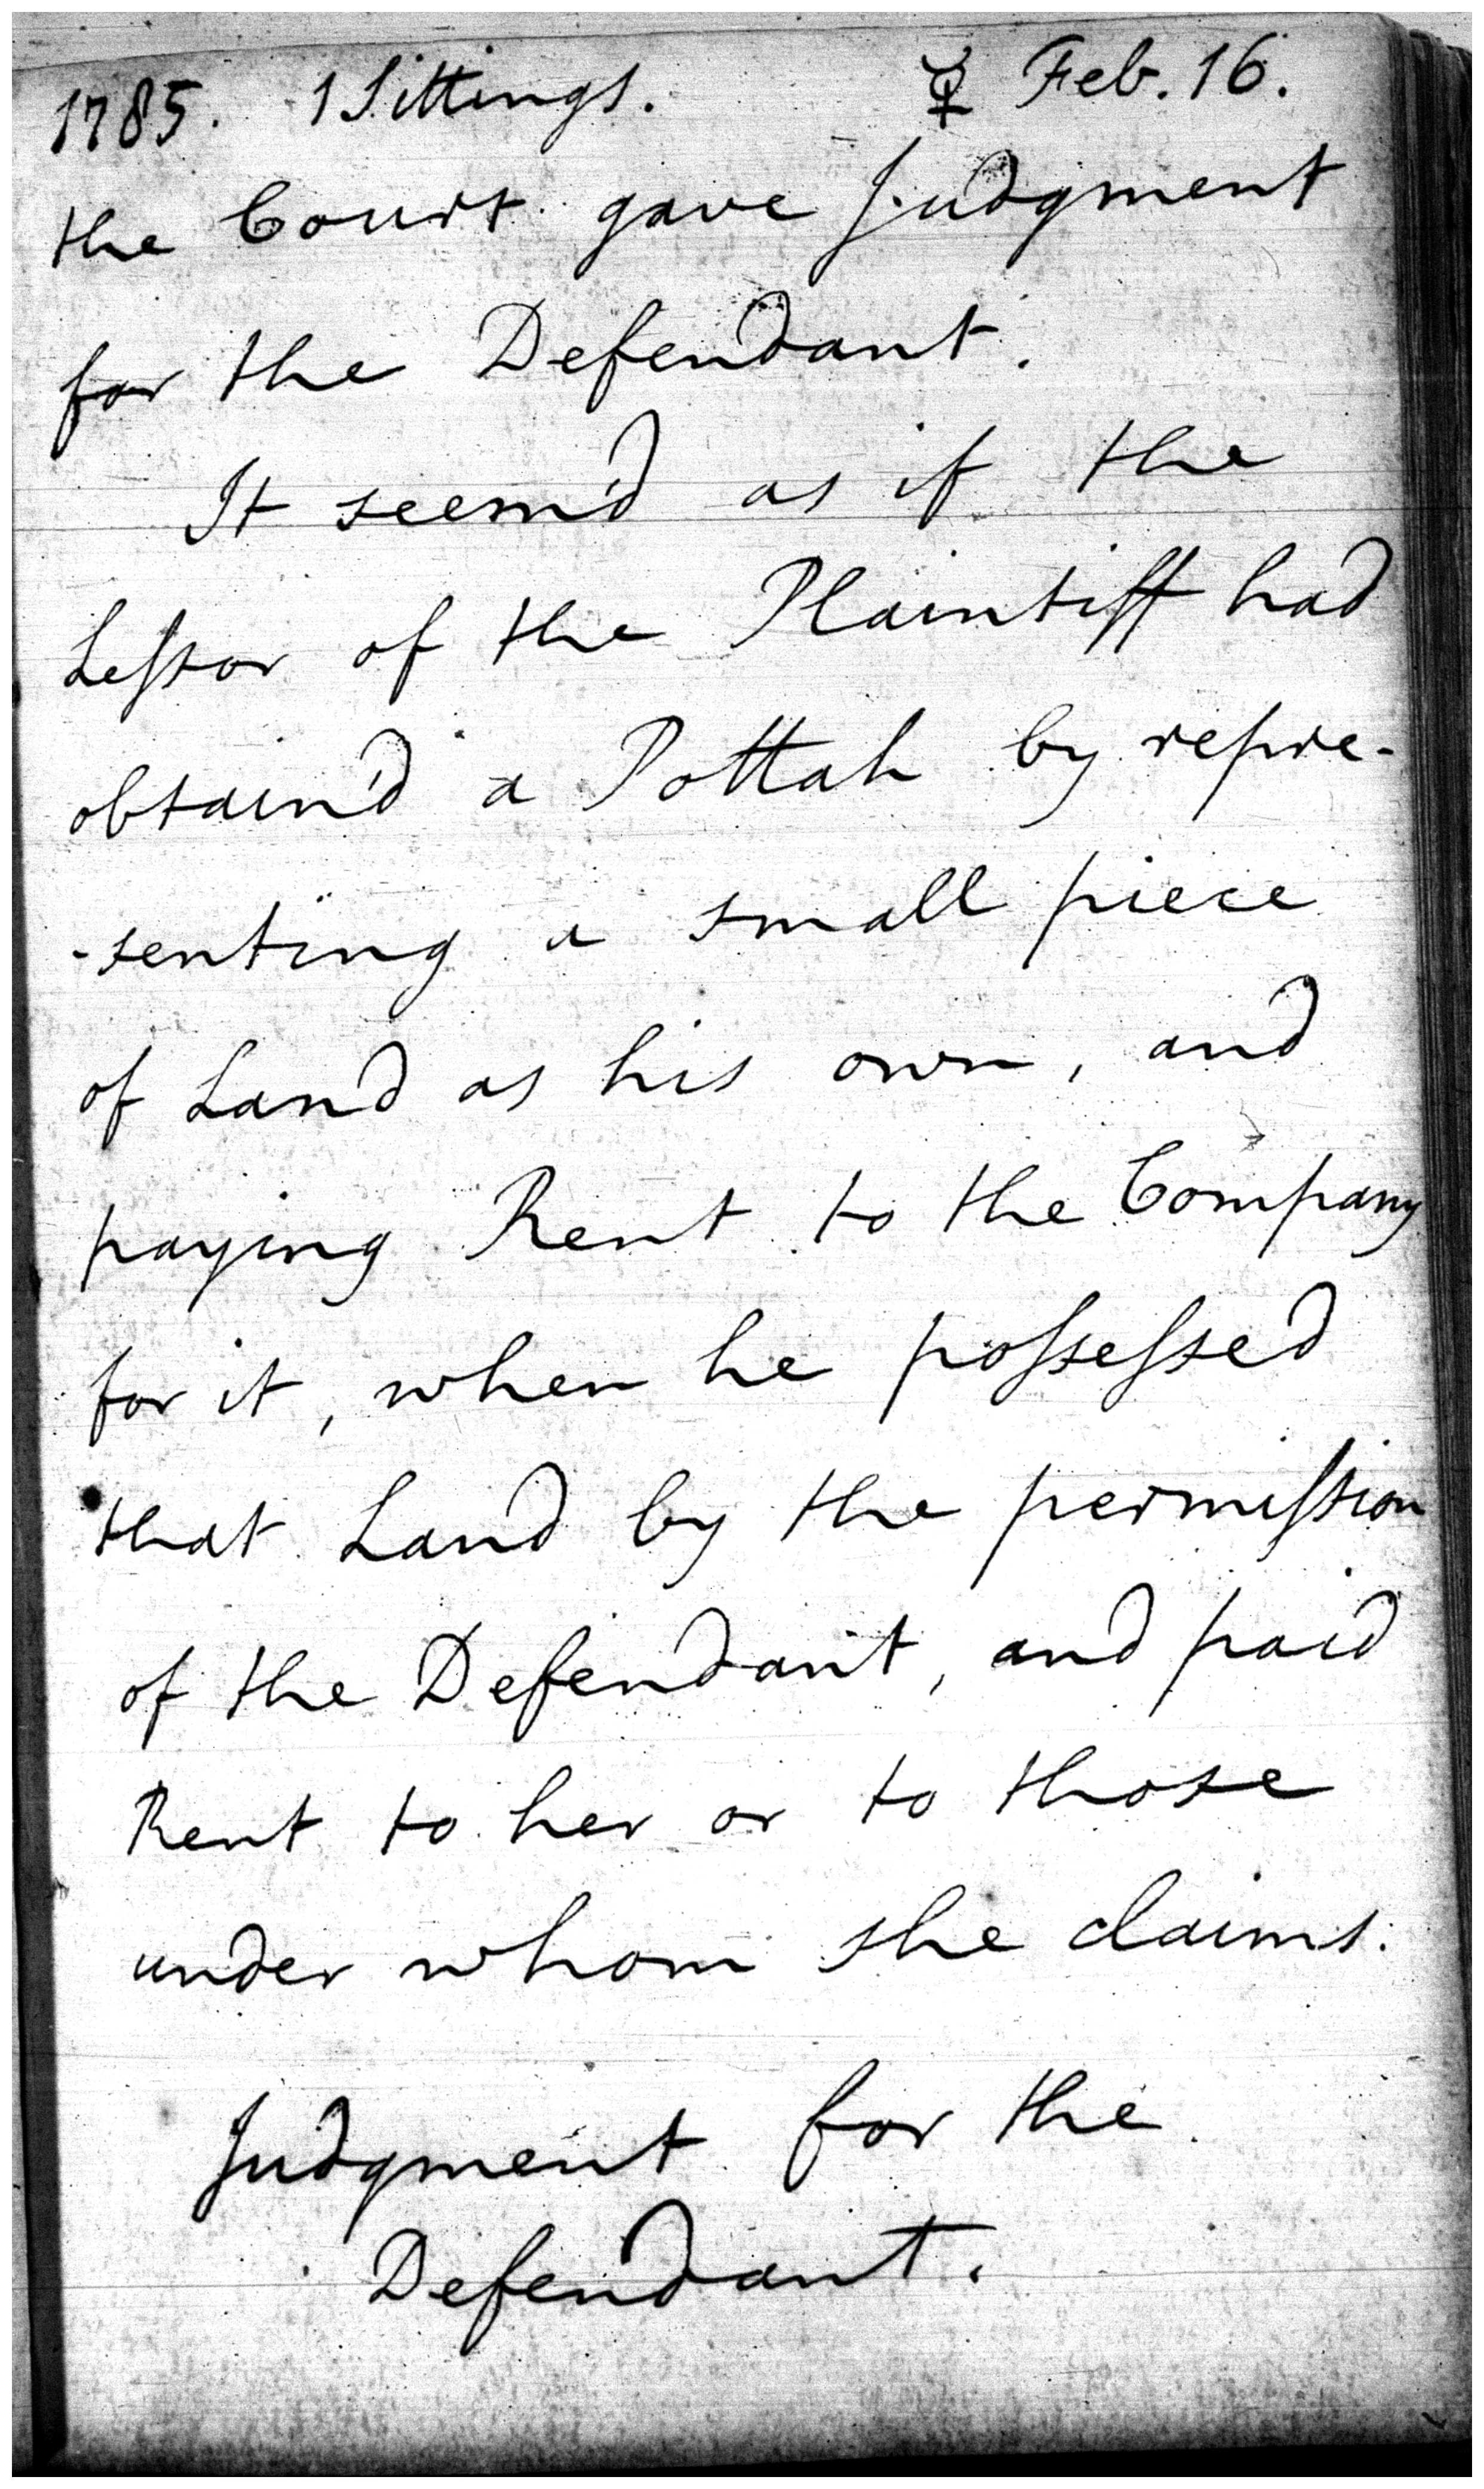 1785. 1 Sittings. ☿ Feb. 16.
the Court gave Judgment
for the Defendant.
It seem'd as if the
Leſsor of the Plaintiff had
obtain'd a Pottah by repre-
-senting a small piece
of Land as his own, and
paying Rent to the Company
for it, when he poſseſsed
that Land by the permiſsion
of the Defendant, and paid
Rent to her or to those
under whom she claims.
Judgment for the
Defendant.